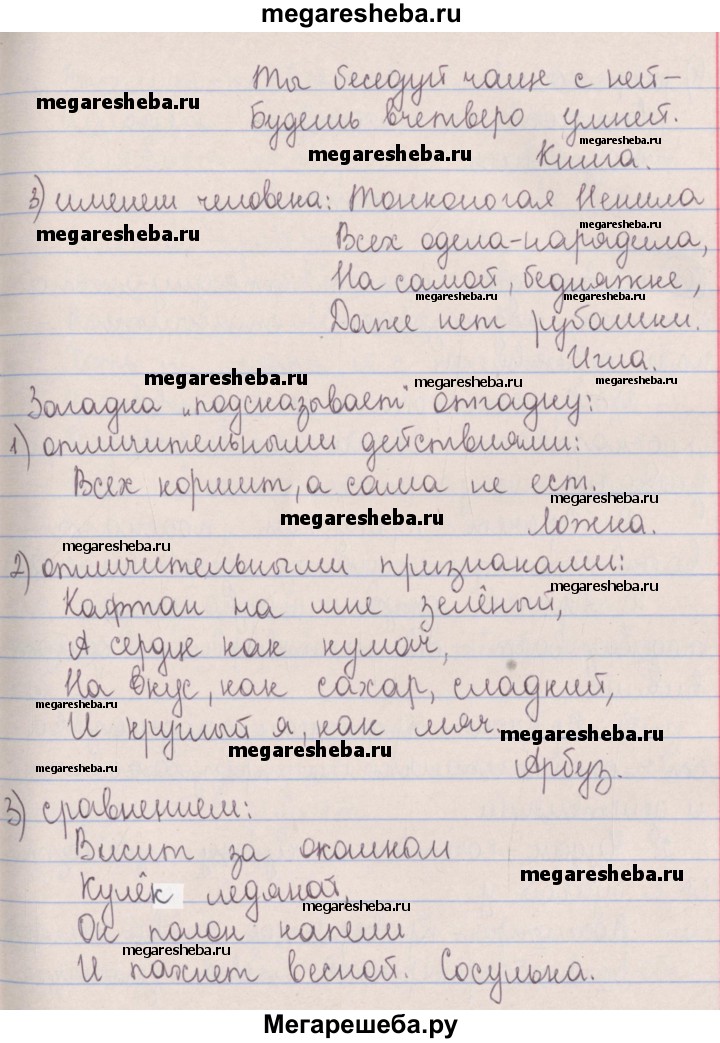 megaresheba.ru
Ты беседуй чаще с ней –
megaresheba.ru
Будешь вчетверо умней.
megaresheba.ru
megaresheba.ru
Книга.
3) именем человека: Тонконогая Ненила
megaresheba.ru
megaresheba.ru
Всех одела-нарядила,
На самой, бедняжке,
megaresheba.ru
megaresheba.ru
Даже нет рубашки.
Игла.
megaresheba.ru
megaresheba.ru
megaresheba.ru
Загадка „подсказывает" отгадку:
1) отличительными действиями:
Всех кормит, а сама не ест.
megaresheba.ru
megaresheba.ru
Ложка.
megaresheba.ru
2) отличительными признаками:
megaresheba.ru
Кафтан на мне зелёный,
А сердце как кумач,
На вкус, как сахар, сладкий,
megaresheba.ru
И круглый я, как мяч.
megaresheba.ru
megaresheba.ru
Арбуз.
megaresheba.ru
3) сравнением:
Висит за окошком
megaresheba.ru
Кулёк ледяной,
megaresheba.ru
Он полон капели
megaresheba.ru
И пахнет весной. Сосулька.
Мегарешеба.ру